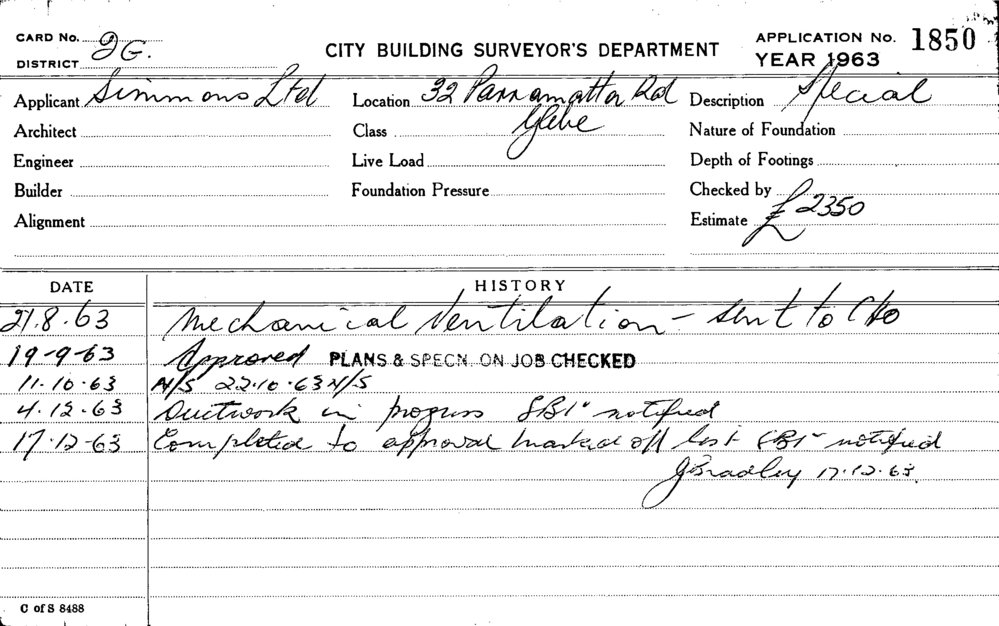 CARD No. 2G.
DISTRICT
CITY BUILDING SURVEYOR'S DEPARTMENT
APPLICATION No. 1850
YEAR 1963
Applicant Simmons Ltd Location 32 Parramatta Rd Description Special
Architect Class Glebe Nature of Foundation
Engineer Live Load Depth of Footings
Builder Foundation Pressure Checked by
Alignment Estimate £2350
DATE HISTORY
21.8.63 Mechanical Ventilation - sent to CHO
19-9-63 Approved PLANS & SPECN. ON JOB CHECKED
11.10.63 N/S 22.10.63 N/S
4.12.63 Ductwork in progress SBI notified
17-12-63 Completed to approval marked off list SBI notified
JBradley 17.12.63.
C of S 8488